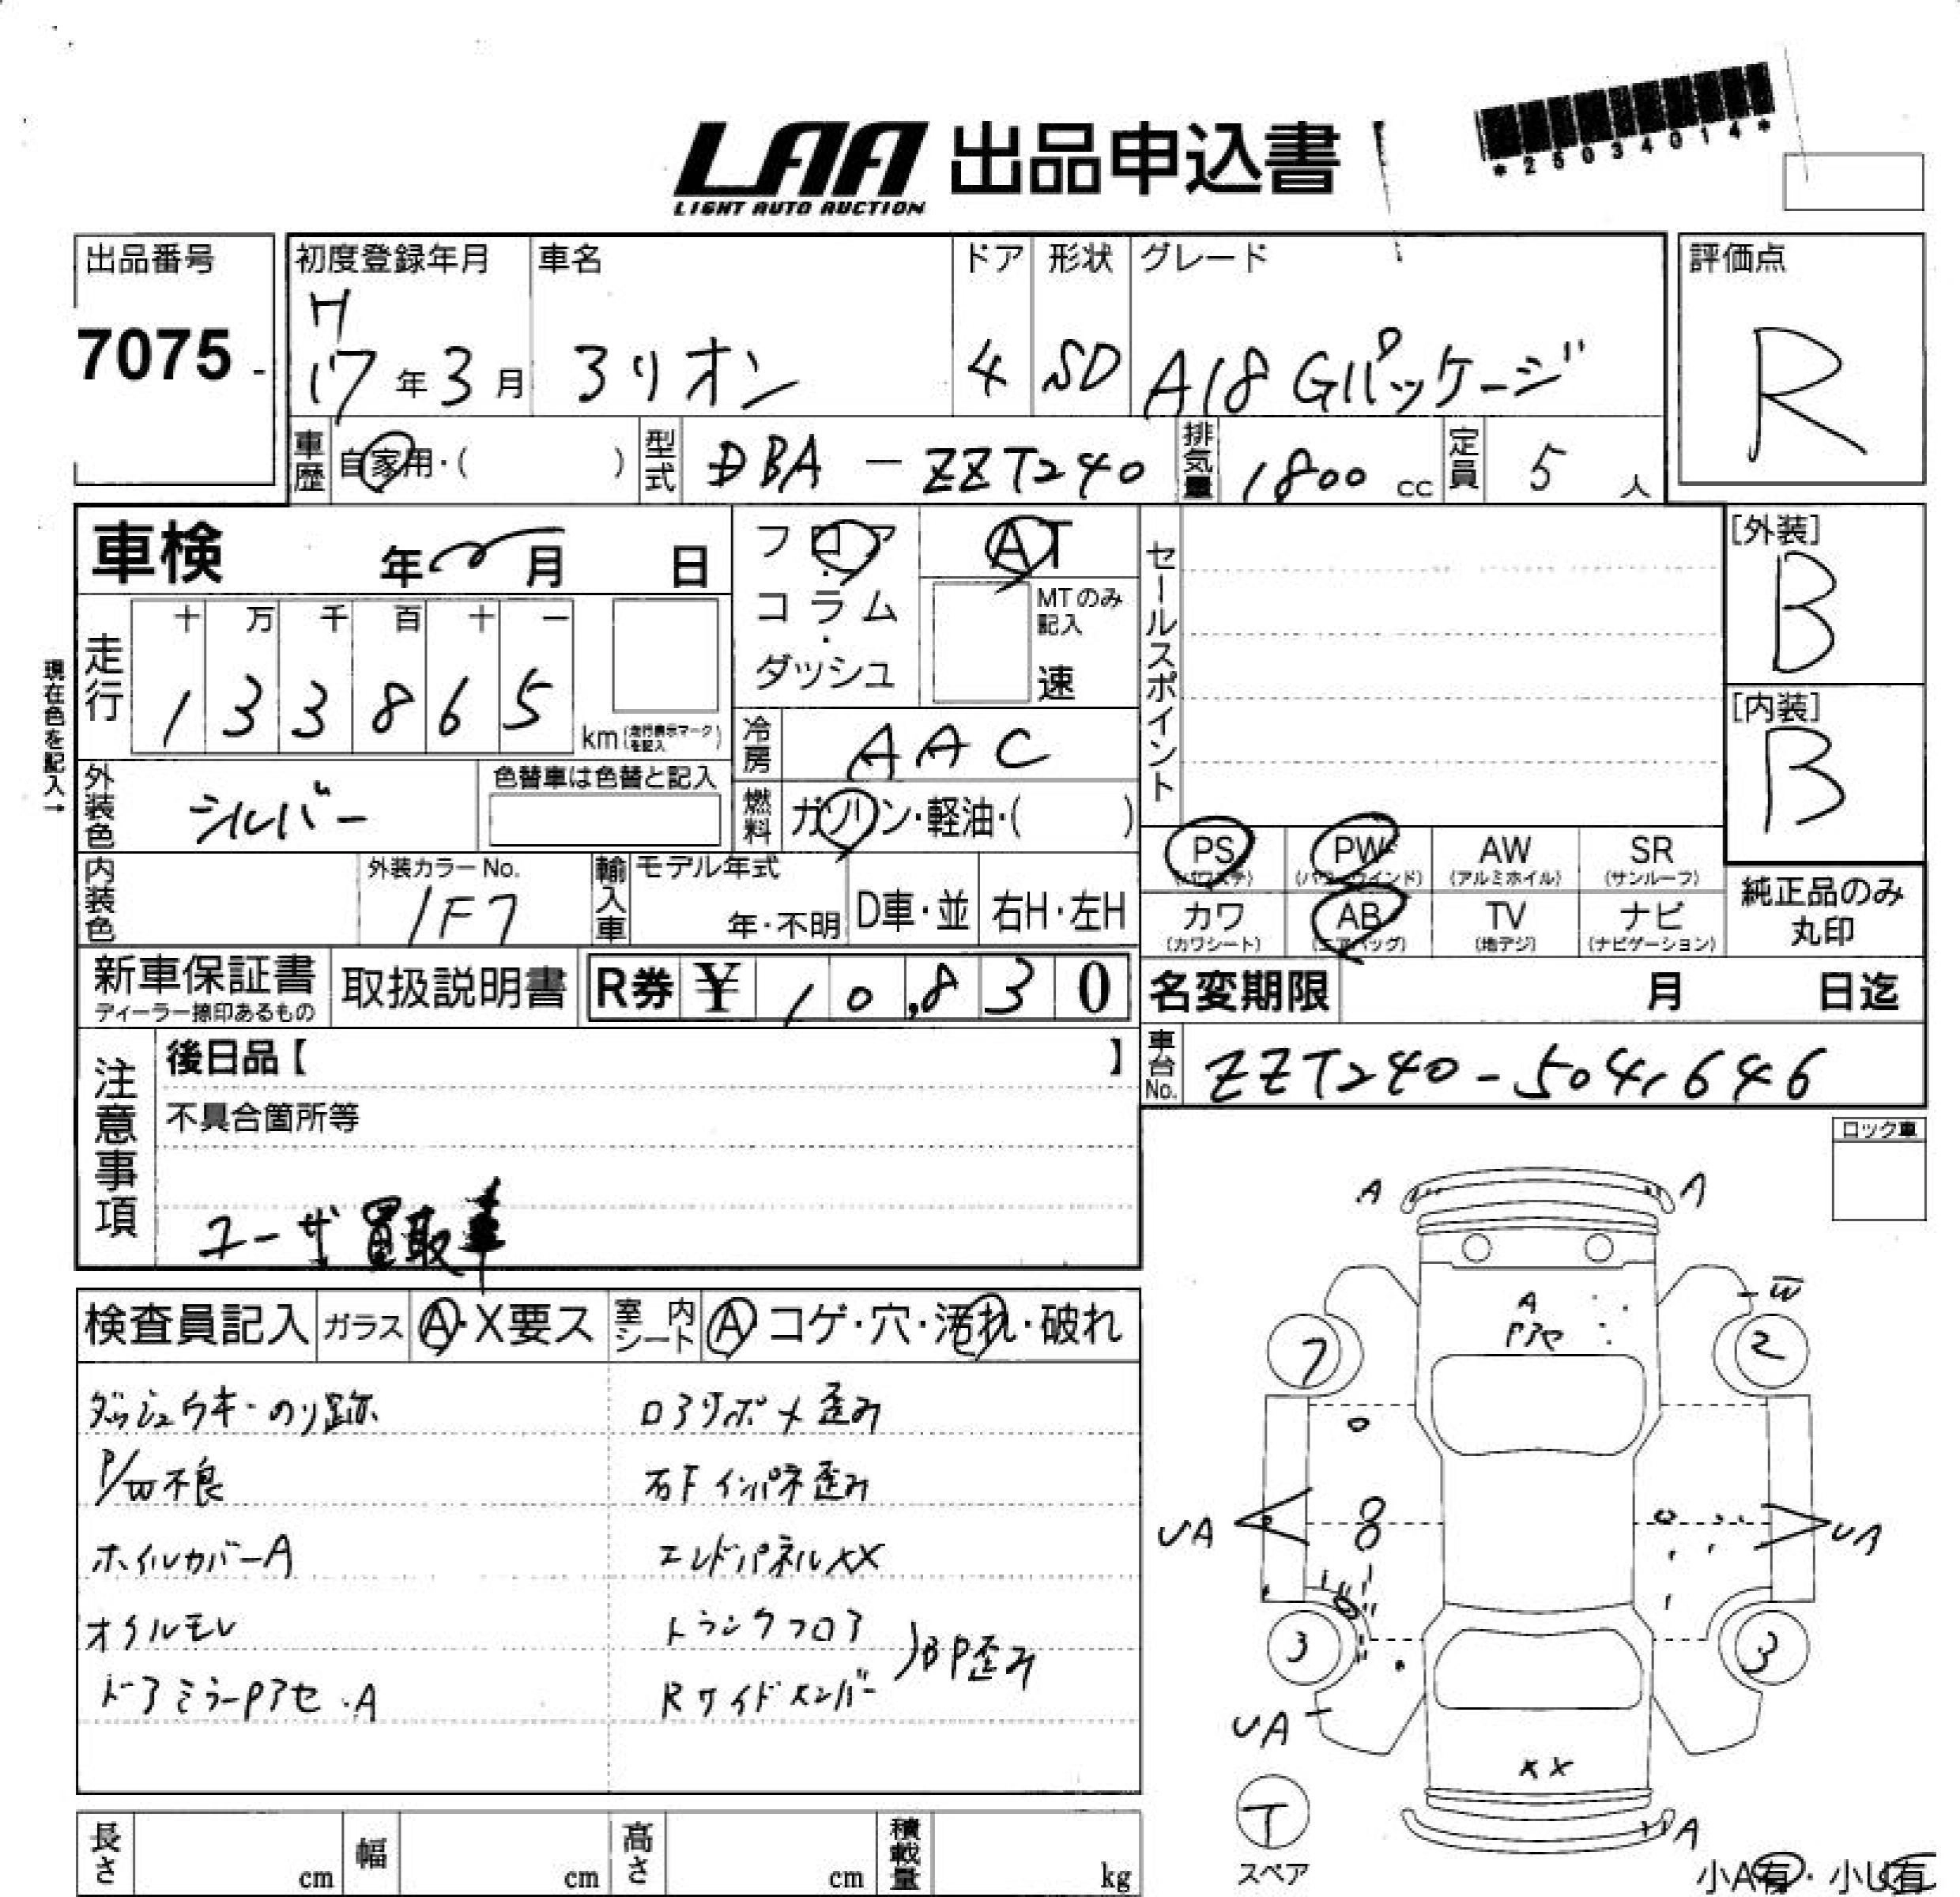 LAA 出品申込書
LIGHT AUTO AUCTION
*25034014*
出品番号
7075
初度登録年月 車名 ドア 形状 グレード 評価点
H
17年 3月 アリオン 4 SD A18 Gパッケージ R
車歴 自家用・( ) 型式 DBA-ZZT240 排気量 1800 cc 定員 5 人
車検 年 月 日
フロア・コラム・ダッシュ
AT
MTのみ記入
速
セールスポイント
[外装]
B
[内装]
B
現在色を記入→
走行 十 万 千 百 十 一
1 3 3 8 6 5 km(走行表示マークを記入)
冷房 AAC
外装色 シルバー 色替車は色替と記入
燃料 ガソリン・軽油・( )
PS(パワステ) PW(パワーウインド) AW(アルミホイル) SR(サンルーフ)
カワ(カワシート) AB(エアバッグ) TV(地デジ) ナビ(ナビゲーション)
純正品のみ丸印
内装色 外装カラーNo. 1F7 輸入車 モデル年式 年・不明 D車・並 右H・左H
新車保証書 ディーラー捺印あるもの 取扱説明書 R券 ¥ 10,830
名変期限 月 日迄
車台No. ZZT240-5041646
注意事項
後日品【 】
不具合箇所等
ユーザ買取車
ロック車
検査員記入 ガラス A・X要ス 室内シート A コゲ・穴・汚れ・破れ
ダッシュウキ・のり跡 ロアサポメ歪み
P/W不良 右Fインパネ歪み
ホイルカバーA エンドパネルXX
オイルモレ トランクフロア
ドアミラーPアセ・A Rサイドメンバー )BP歪み
A A
A
Pアセ
W
7 2
UA UA
3 3
UA
XX
T
スペア
A
小A有・小U有
長さ cm 幅 cm 高さ cm 積載量 kg